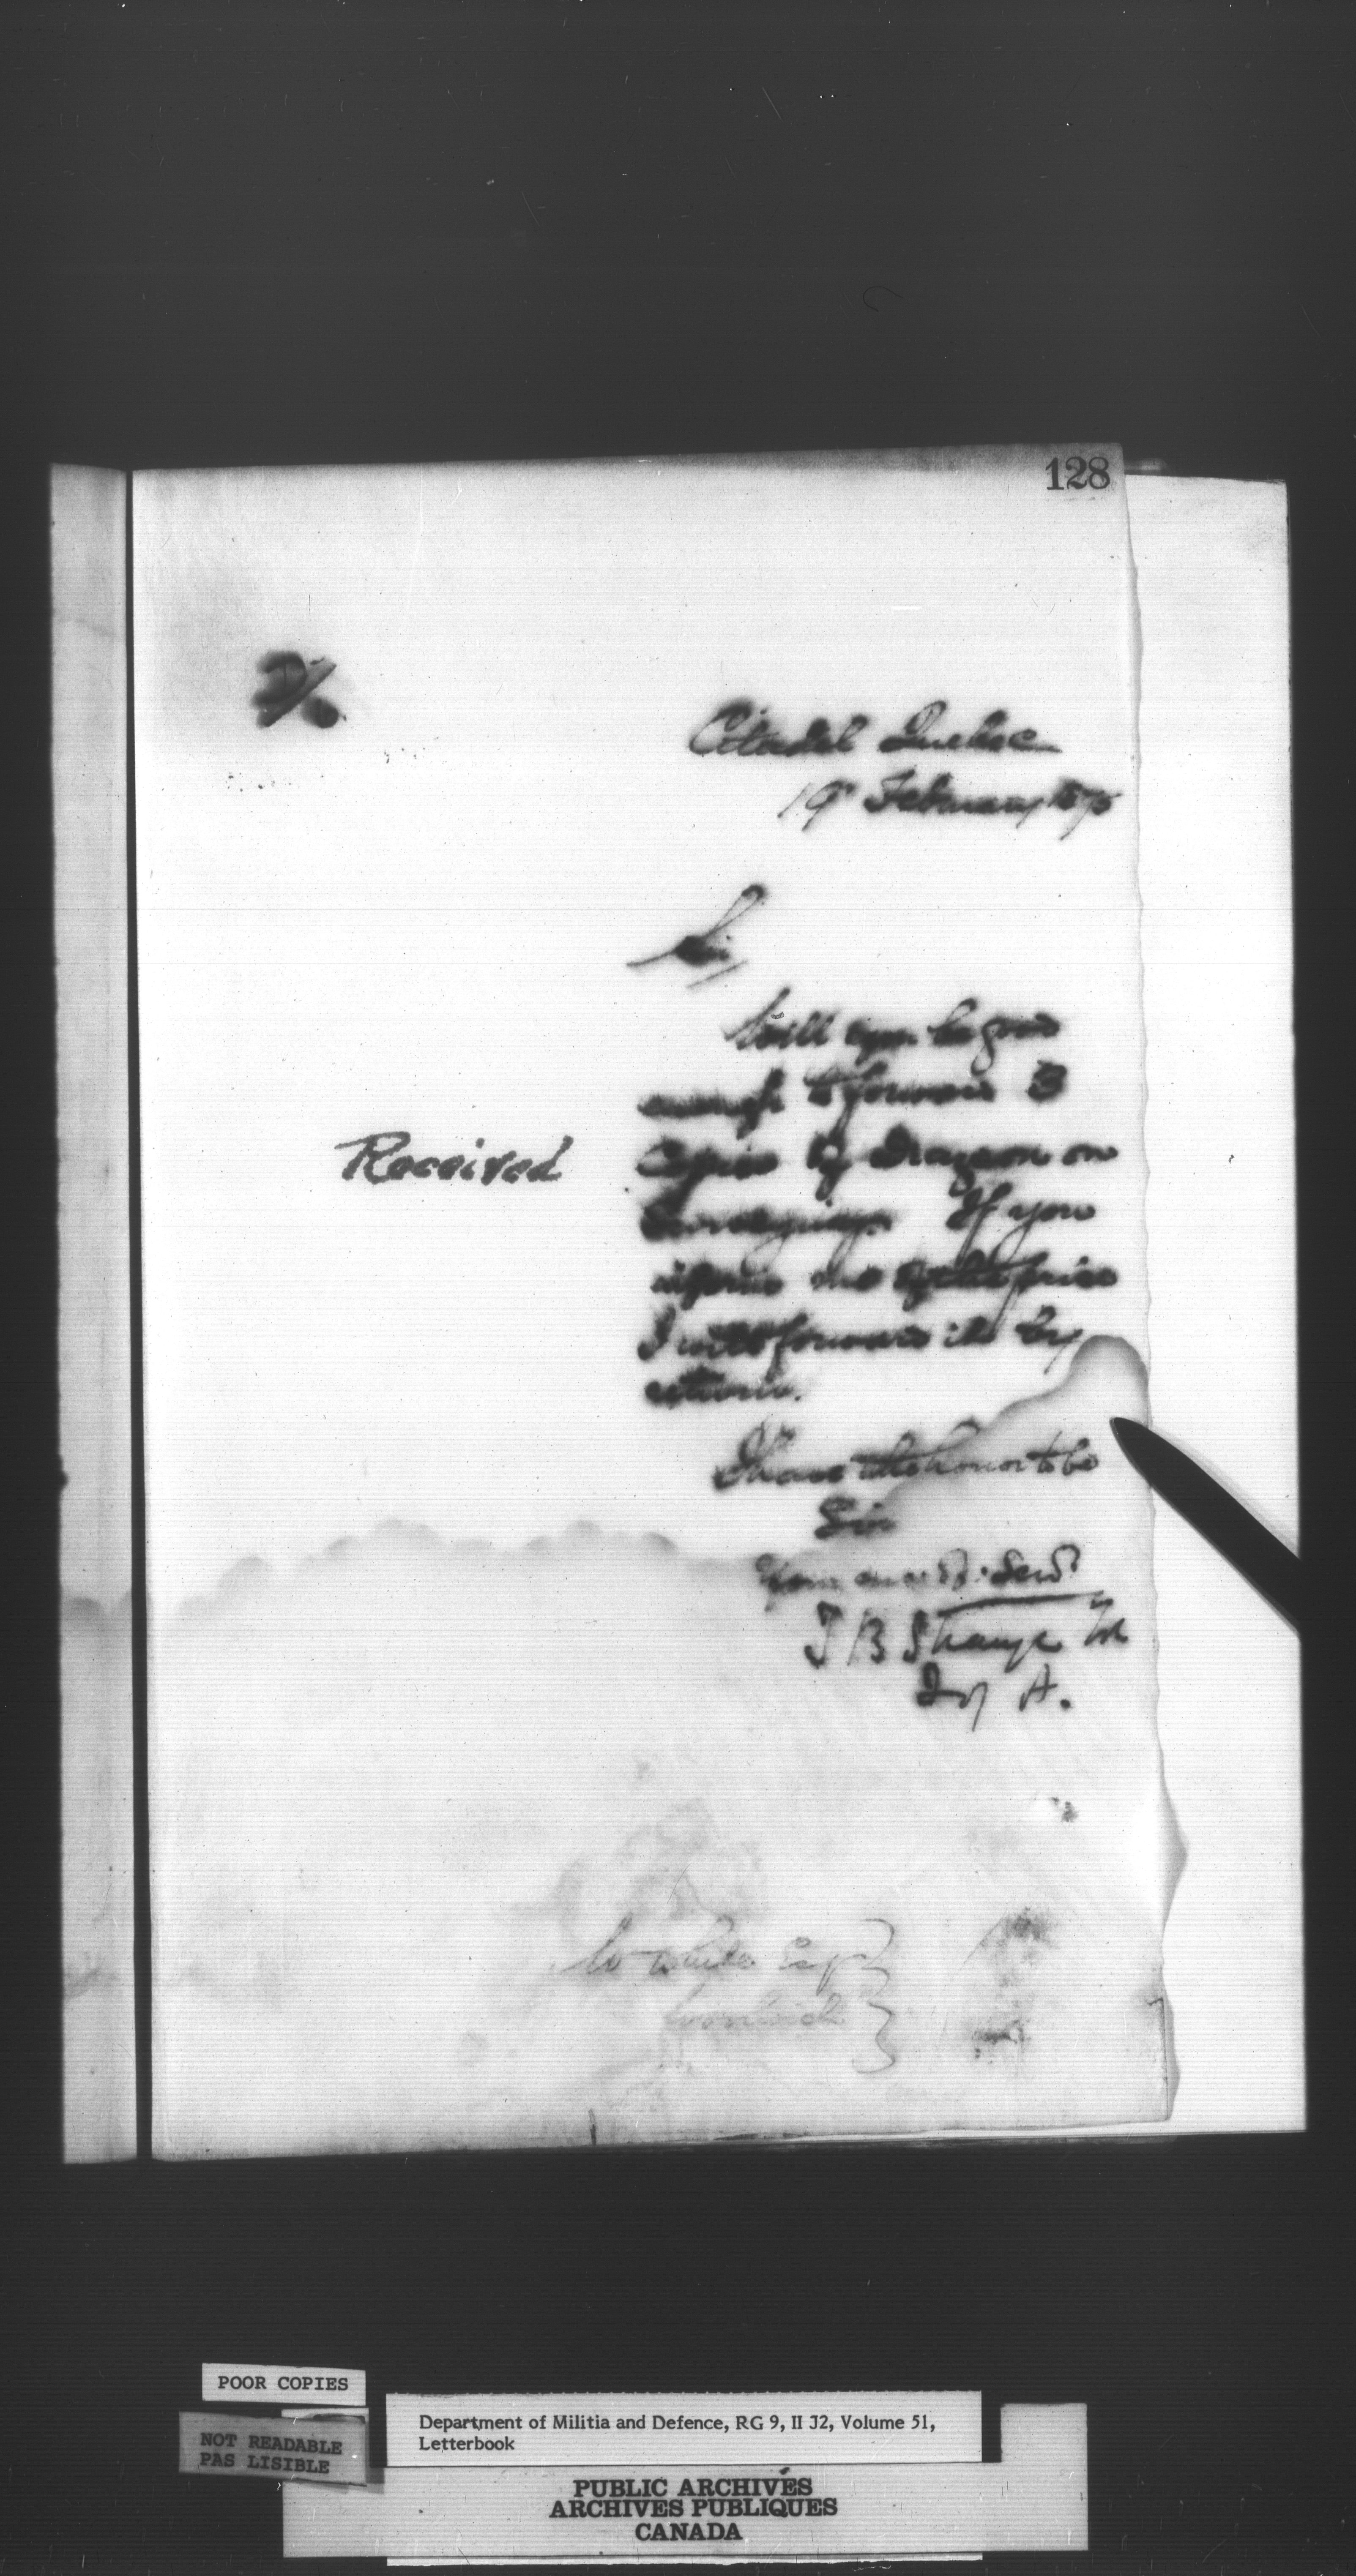 128
Citadel Quebec
19th February 1875
Sir,
Will you be good
enough to forward 3
Copies of on
If you
inform me of the price
I will forward it by
return.
Received
I have the honor to be
Sir
Your
T B Strange Col
I of A.
Woolwich
POOR COPIES
NOT READABLE
PAS LISIBLE
Department of Militia and Defence, RG 9, II J2, Volume 51,
Letterbook
PUBLIC ARCHIVES
ARCHIVES PUBLIQUES
CANADA